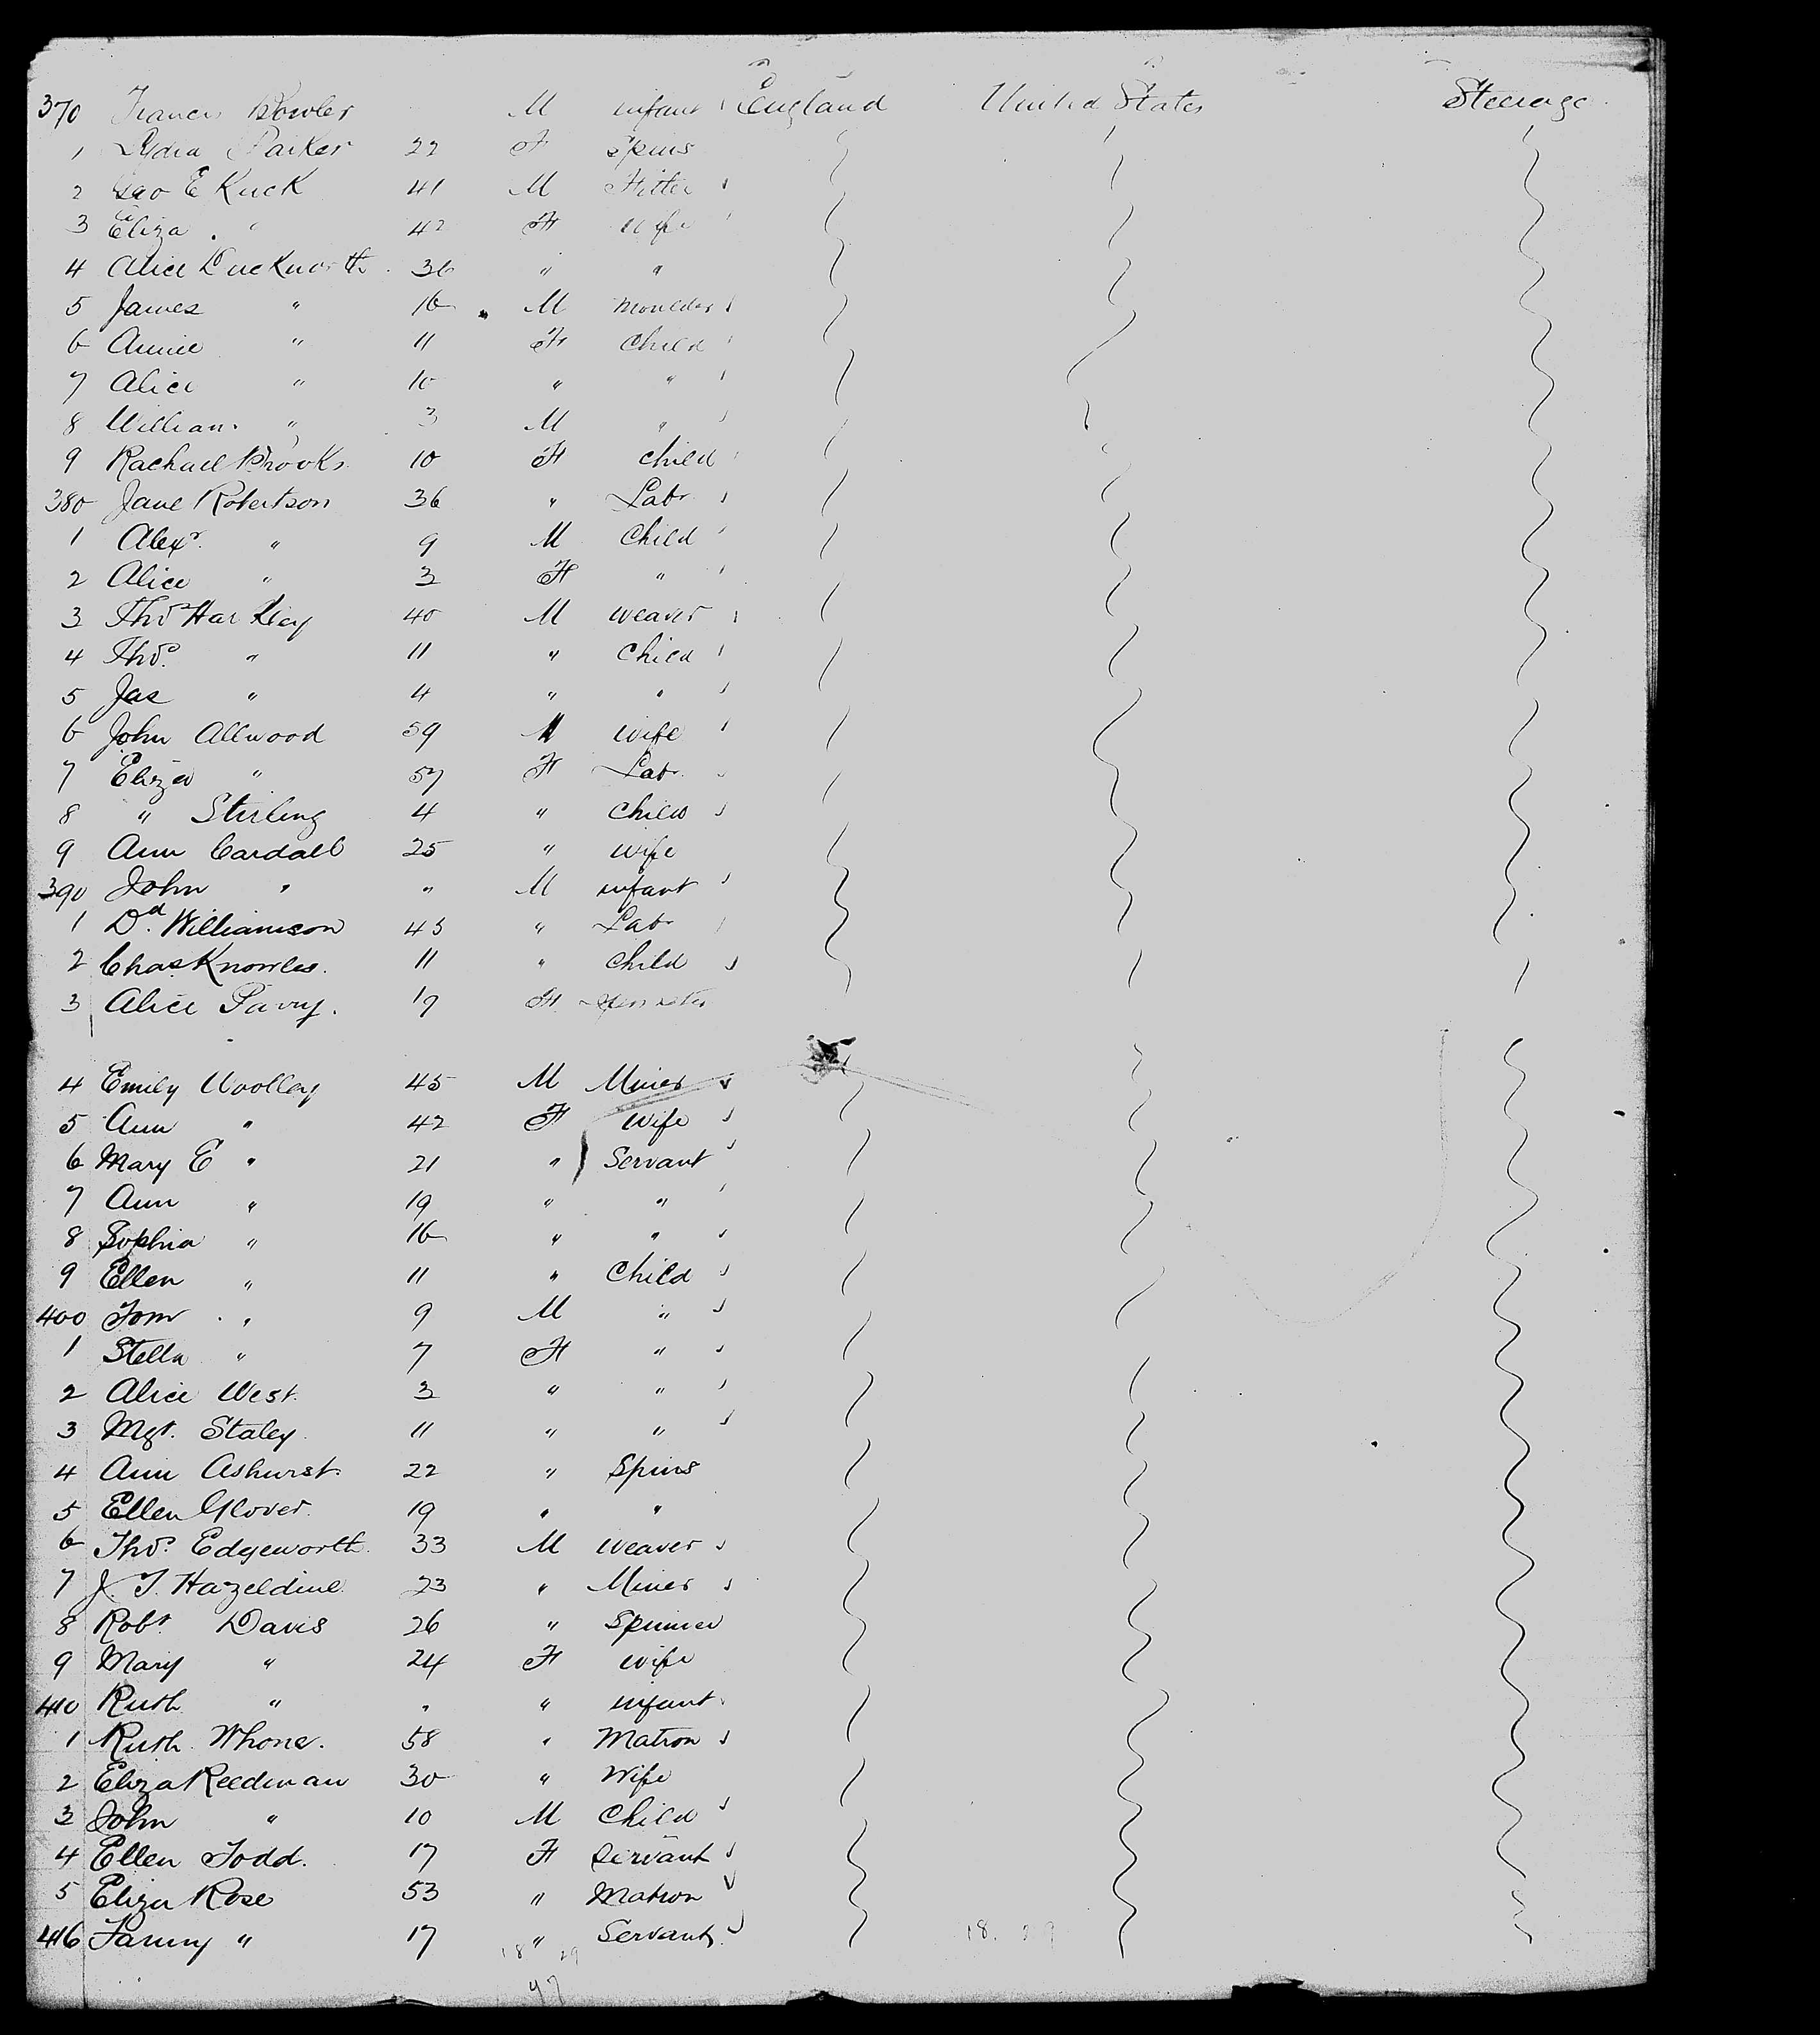 370 Francis Bowler M infant England United States Steerage
1 Lydia Parker 22 F Spins
2 Geo E Kuck 41 M Fitter
3 Eliza " 42 F wife
4 Alice Duckworth 36 " "
5 James " 16 M Moulder
6 Annie " 11 F Child
7 Alice " 10 " "
8 William " 3 M "
9 Rachael Brooks 10 F child
380 Jane Robertson 36 " Labr
1 Alexr. " 9 M Child
2 Alice " 3 F "
3 Thos Hartley 40 M weaver
4 Thos. " 11 " Child
5 Jas " 4 " "
6 John Allwood 59 M wife
7 Eliza " 57 F Labr
8 " Stirling 4 " Child
9 Ann Cardall 25 " wife
390 John " " M infant
1 Dd. Williamson 43 " Labr
2 Chas Knowles. 11 " Child
3 Alice Parry. 19 F Spinster
4 Emily Woolley 45 M Miner
5 Ann " 42 F Wife
6 Mary E " 21 " Servant
7 Ann " 19 " "
8 Sophia " 16 " "
9 Ellen " 11 " Child
400 Tom " 9 M "
1 Stella " 7 F "
2 Alice West. 3 " "
3 Mgt. Staley 11 " "
4 Ann Ashurst. 22 " Spins
5 Ellen Glover. 19 " "
6 Thos. Edgeworth. 33 M weaver
7 J. T. Hazeldine 23 " Miner
8 Robt. Davis 26 " Spinner
9 Mary " 24 F wife
410 Ruth " " " infant
1 Ruth Whone. 58 " Matron
2 Eliza Reedman 30 " Wife
3 John " 10 M Child
4 Ellen Todd. 17 F Servant
5 Eliza Rose 53 " Matron
416 Fanny " 17 " Servant
97